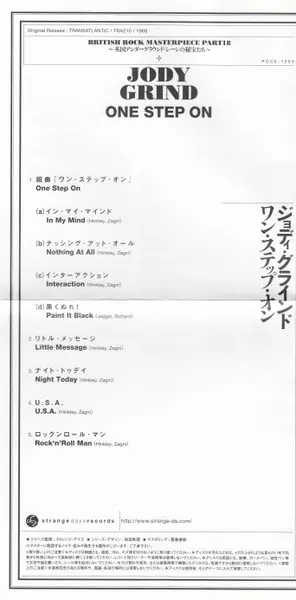 Original Release : TRANSATLANTIC / TRA210 / 1969
BRITISH ROCK MASTERPIECE PART18
～英国アンダーグラウンドシーンの秘宝たち～
JODY
GRIND
ONE STEP ON
1. 組曲「ワン・ステップ・オン」
One Step On
(a)イン・マイ・マインド
In My Mind (Hinkley, Zagni)
(b)ナッシング・アット・オール
Nothing At All (Hinkley, Zagni)
(c)インターアクション
Interaction (Hinkley, Zagni)
(d)黒くぬれ!
Paint It Black (Jagger, Richard)
2. リトル・メッセージ
Little Message (Hinkley, Zagni)
3. ナイト・トゥデイ
Night Today (Hinkley, Zagni)
4. U.S.A.
U.S.A. (Hinkley, Zagni)
5. ロックンロール・マン
Rock'n'Roll Man (Hinkley, Zagni)
ジョディ・グラインド
ワン・ステップ・オン
strangedaysrecords
http://www.strange-ds.com/